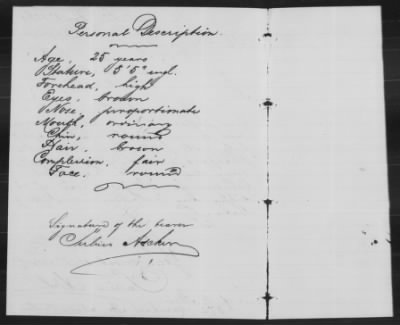 Personal Description.
Age, 25 years
Stature, 5'5" engl.
Forehead, high
Eyes, brown
Nose, proportionate
Mouth, ordinary
Chin, round
Hair, brown
Complexion, fair
Face, round
Signature of the bearer
Julius